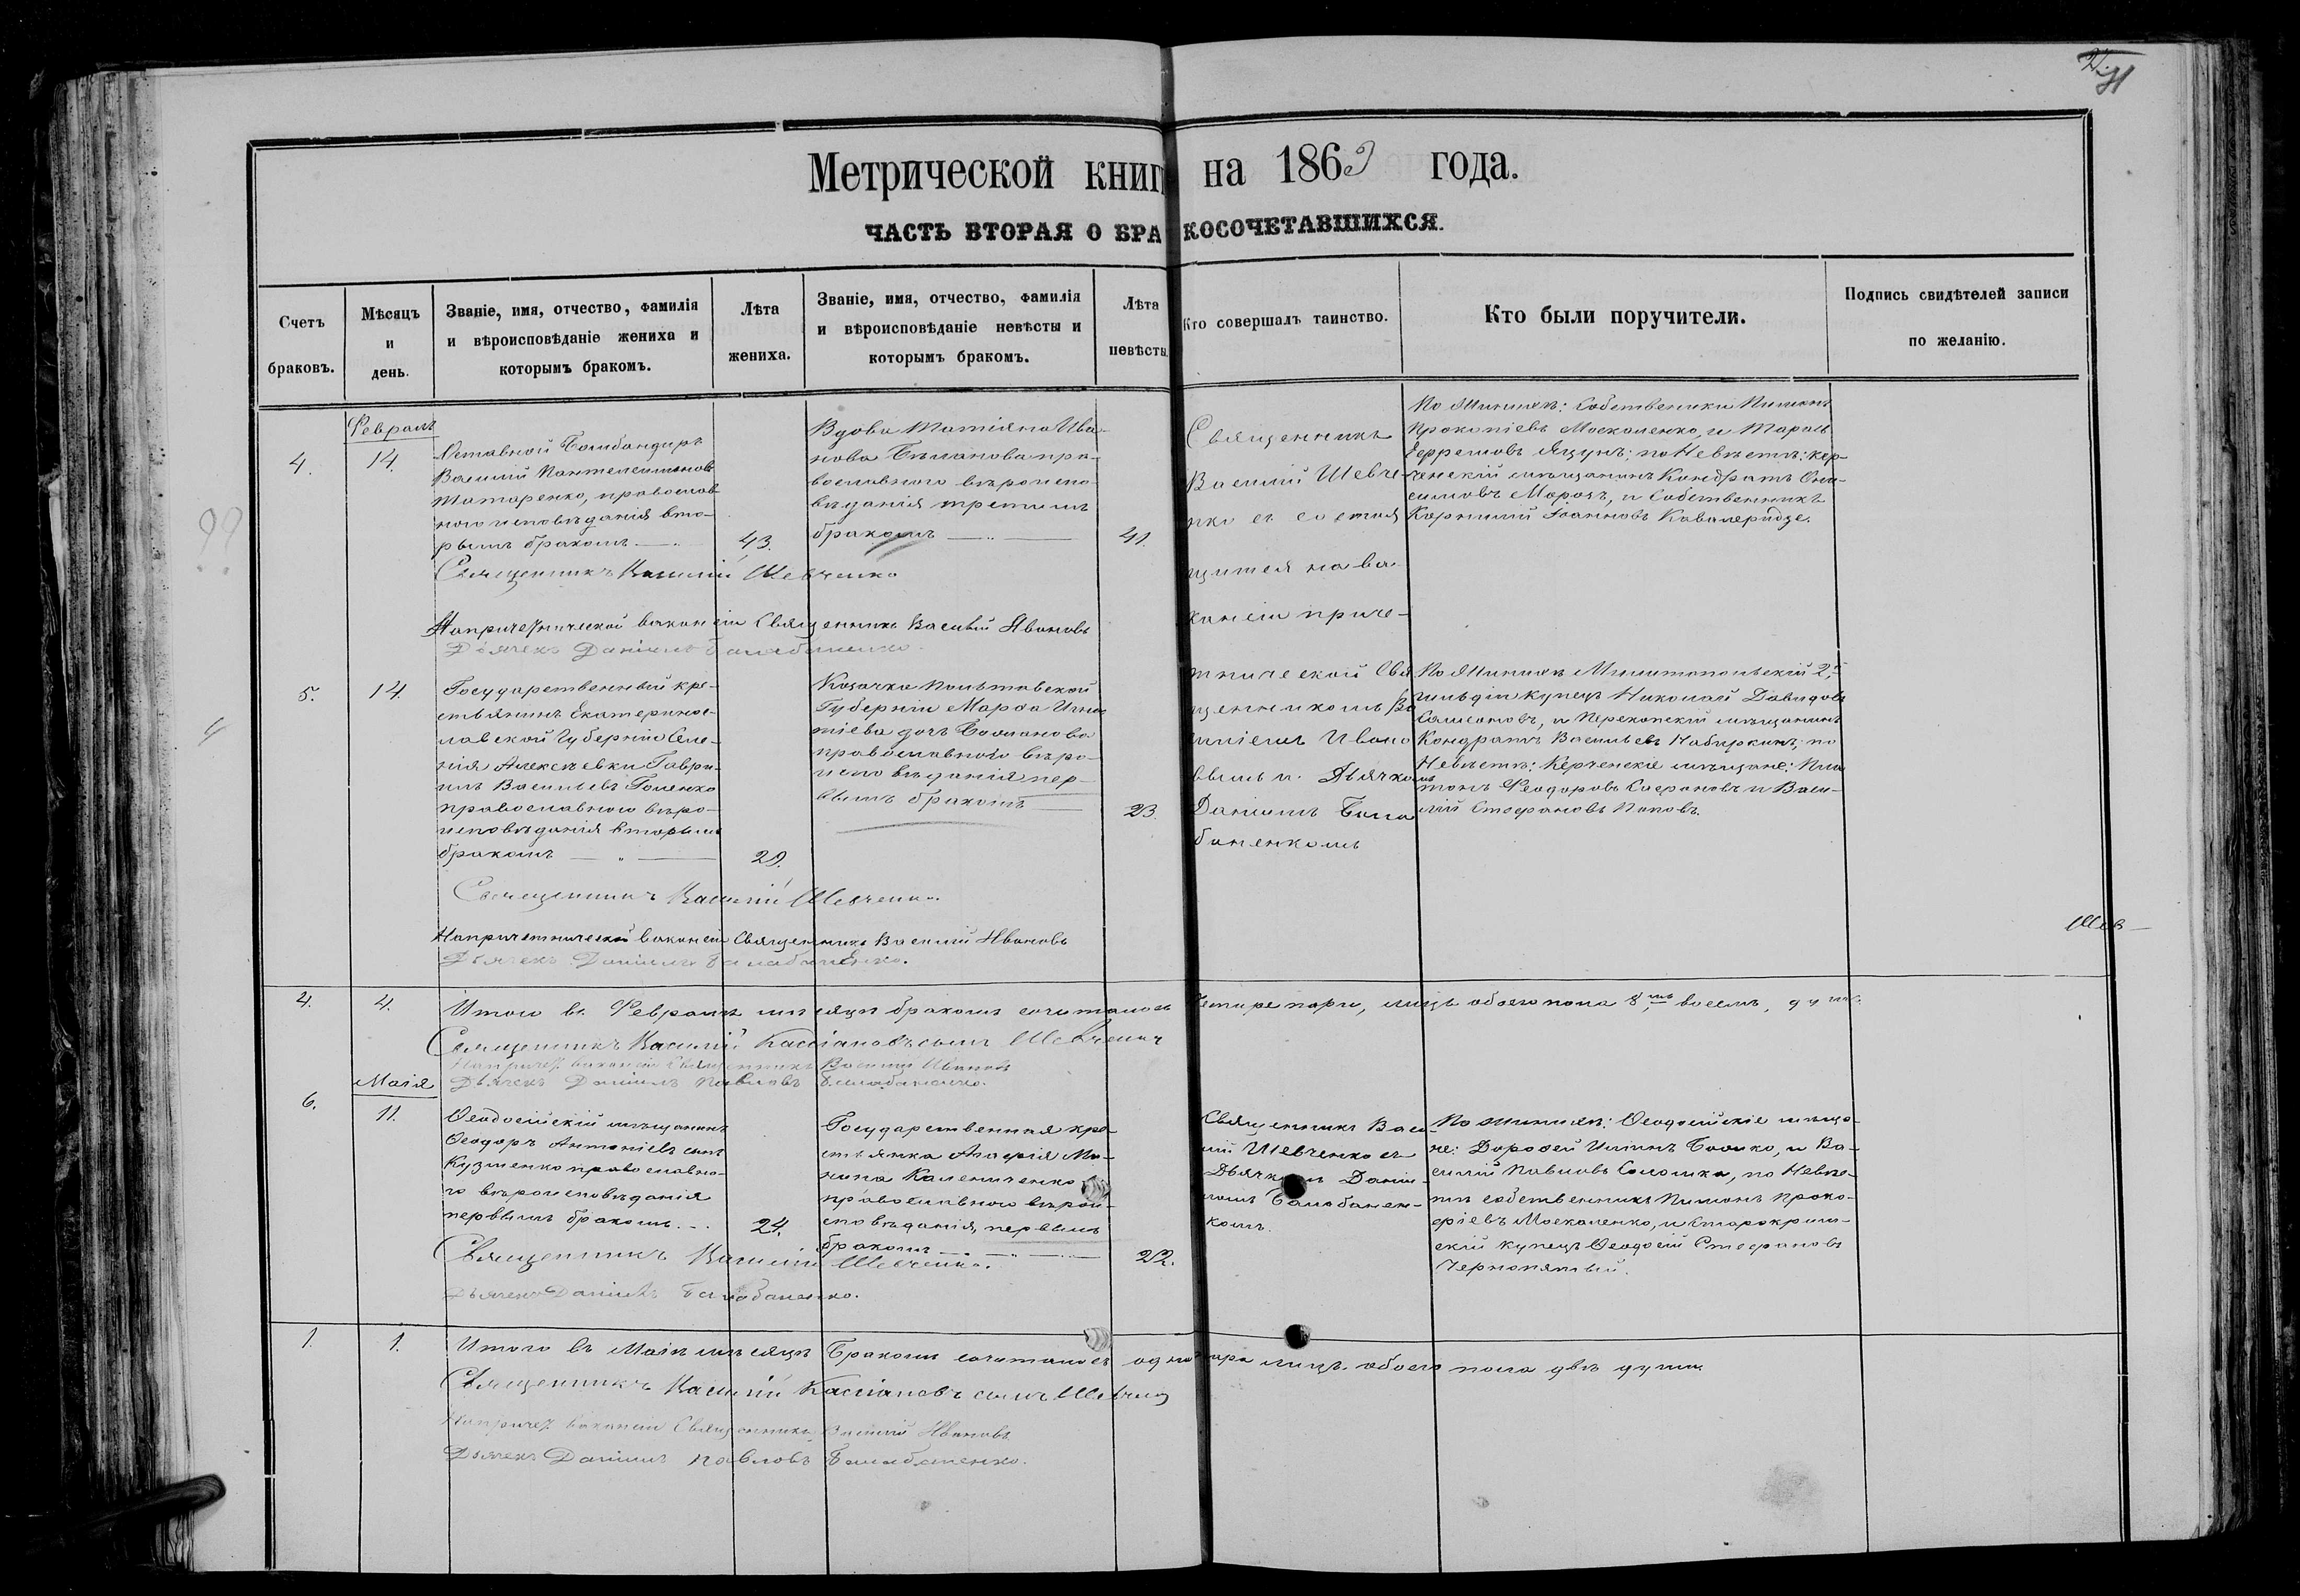 Метрической книги на 1869 года.
ЧАСТЬ ВТОРАЯ О БРАКОСОЧЕТАВШИХСЯ.
Счетъ браковъ.
Мѣсяцъ и день.
Званіе, имя, отчество, фамилія и вѣроисповѣданіе жениха и которымъ бракомъ.
Лѣта жениха.
Званіе, имя, отчество, фамилія и вѣроисповѣданіе невѣсты и которымъ бракомъ.
Лѣта невѣсты.
Кто совершалъ таинство.
Кто были поручители.
Подпись свидѣтелей записи по желанію.
Февраль
4.
14.
Отставной
Василий Пантелеимоновъ
Татаренко, православ
ного исповѣданія вто-
рымъ бракомъ
43.
Вдова Татіяна Ива-
нова Бѣланова пра-
вославного вѣроиспо-
вѣданія третимъ
бракомъ
41.
Священникъ
Василий Шевче-
нко съ состоя
щимся на ва-
кансіи приче-
тнической Свя
щенникомъ Ва
силіемъ Ивано
вымъ и Дьячкомъ
Даніиломъ Бала
баненкомъ
По Жинихѣ: Собственики Пимонъ
Прокопіевъ Москаленко, и Тарасъ
Ефремовъ Яцунъ; по Невѣстѣ: кер-
ченскій мѣщанинъ Кондратъ Они-
симовъ Морозъ, и Собственникъ
Корнилий Іоанновъ Кавалеридзе.
Священникъ Василій Шевченко
На причетнической вакансіи Священникъ Василий Ивановъ
Дьячекъ Даніилъ Балабаненко.
5.
14.
Государственный кре-
стьянинъ Екатеринос-
лавской Губерніи Селе-
нія Алексѣевки Гаври-
илъ Васильевъ Голенко
православного вѣро-
исповѣданія вторымъ
бракомъ
29.
Козачка Полтавской
Губерніи Марфа Игна
тіева дочь Босманова
православного вѣро-
исповѣданія пер-
вымъ бракомъ
23.
По Жинихѣ Милитопольскій 2й
гильдіи купецъ Николай Давидовъ
Самсоновъ, и Перекопскій мѣщанинъ
Кондратъ Васильевъ Набиркинъ; по
Невѣстѣ: Керченскіе мѣщане: Пла
тонъ Феодоровъ Сафроновъ и Васи-
лій Стефановъ Поповъ.
Священникъ Василій Шевченко.
На причетнической вакансіи Священникъ Василий Ивановъ
Дьячекъ Даніилъ Балабаненко.
Шев-
4.
4.
Итого въ Февралѣ мѣсяцѣ бракомъ сочиталось четыре пары, лицъ обоего пола 8мъ восемь, душъ.
Священникъ Василій Кассіановъ сынъ Шевченко
На причет. вакансіи Священникъ Василий Ивановъ
Дьячекъ Даніилъ Павловъ Балабаненко.
Маія
6.
11.
Феодосійскій мѣщанинъ
Феодоръ Антоніевъ сынъ
Кузменко православно-
го вѣроисповѣданія
первымъ бракомъ
24.
Государственная кре-
стьянка Агафія Ми-
нина Калениченко
православного вѣрои-
сповѣданія, первымъ
бракомъ
22.
Священникъ Васи-
лій Шевченко съ
Дьячкомъ Даніи-
ломъ Балабанен-
комъ.
По Жинихѣ: Феодосійскіе мѣща-
не: Дорофей Ильинъ Бойко, и Ва-
силий Павловъ Соломка, по Невѣс-
тѣ собственникъ Пимонъ Проко-
фіевъ Москаленко, и старокрим-
скій купецъ Феодосій Стефановъ
Чернопятый.
Священникъ Василій Шевченко.
Дьячекъ Даніилъ Балабаненко.
1.
1.
Итого въ Маіѣ мѣсяцѣ Бракомъ сочиталось одна пара лицъ обоего пола двѣ души
Священникъ Василій Кассіановъ сынъ Шевченко
На причет. вакансіи Священникъ Василий Ивановъ
Дьячекъ Даніилъ Павловъ Балабаненко.